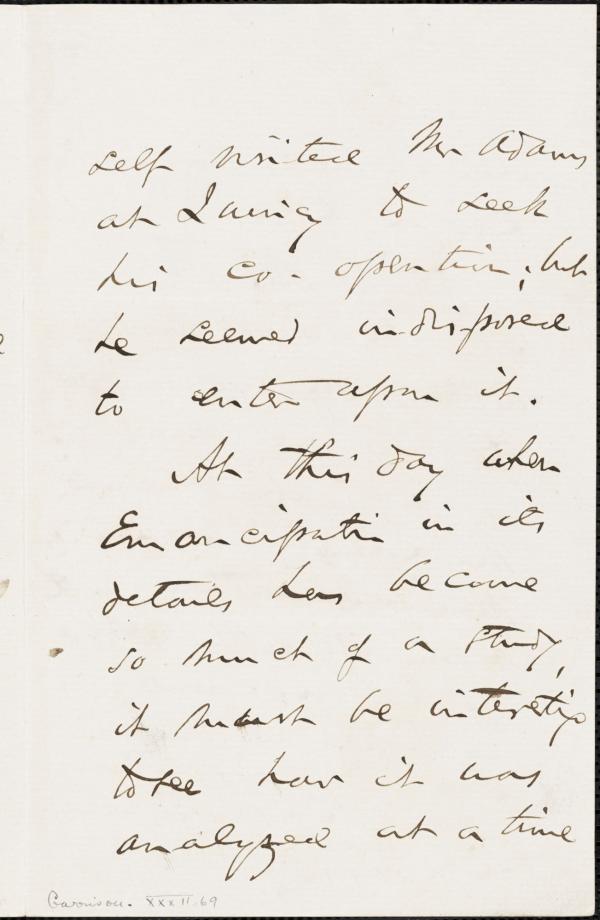 self visited Mr Adams
at Quincy to seek
his co-operation; but
he seemed indisposed
to enter upon it.
At this day when
Emancipation in its
details has become
so much of a study,
it must be interesting
to see how it was
analyzed at a time
Garrison. XXXII.69